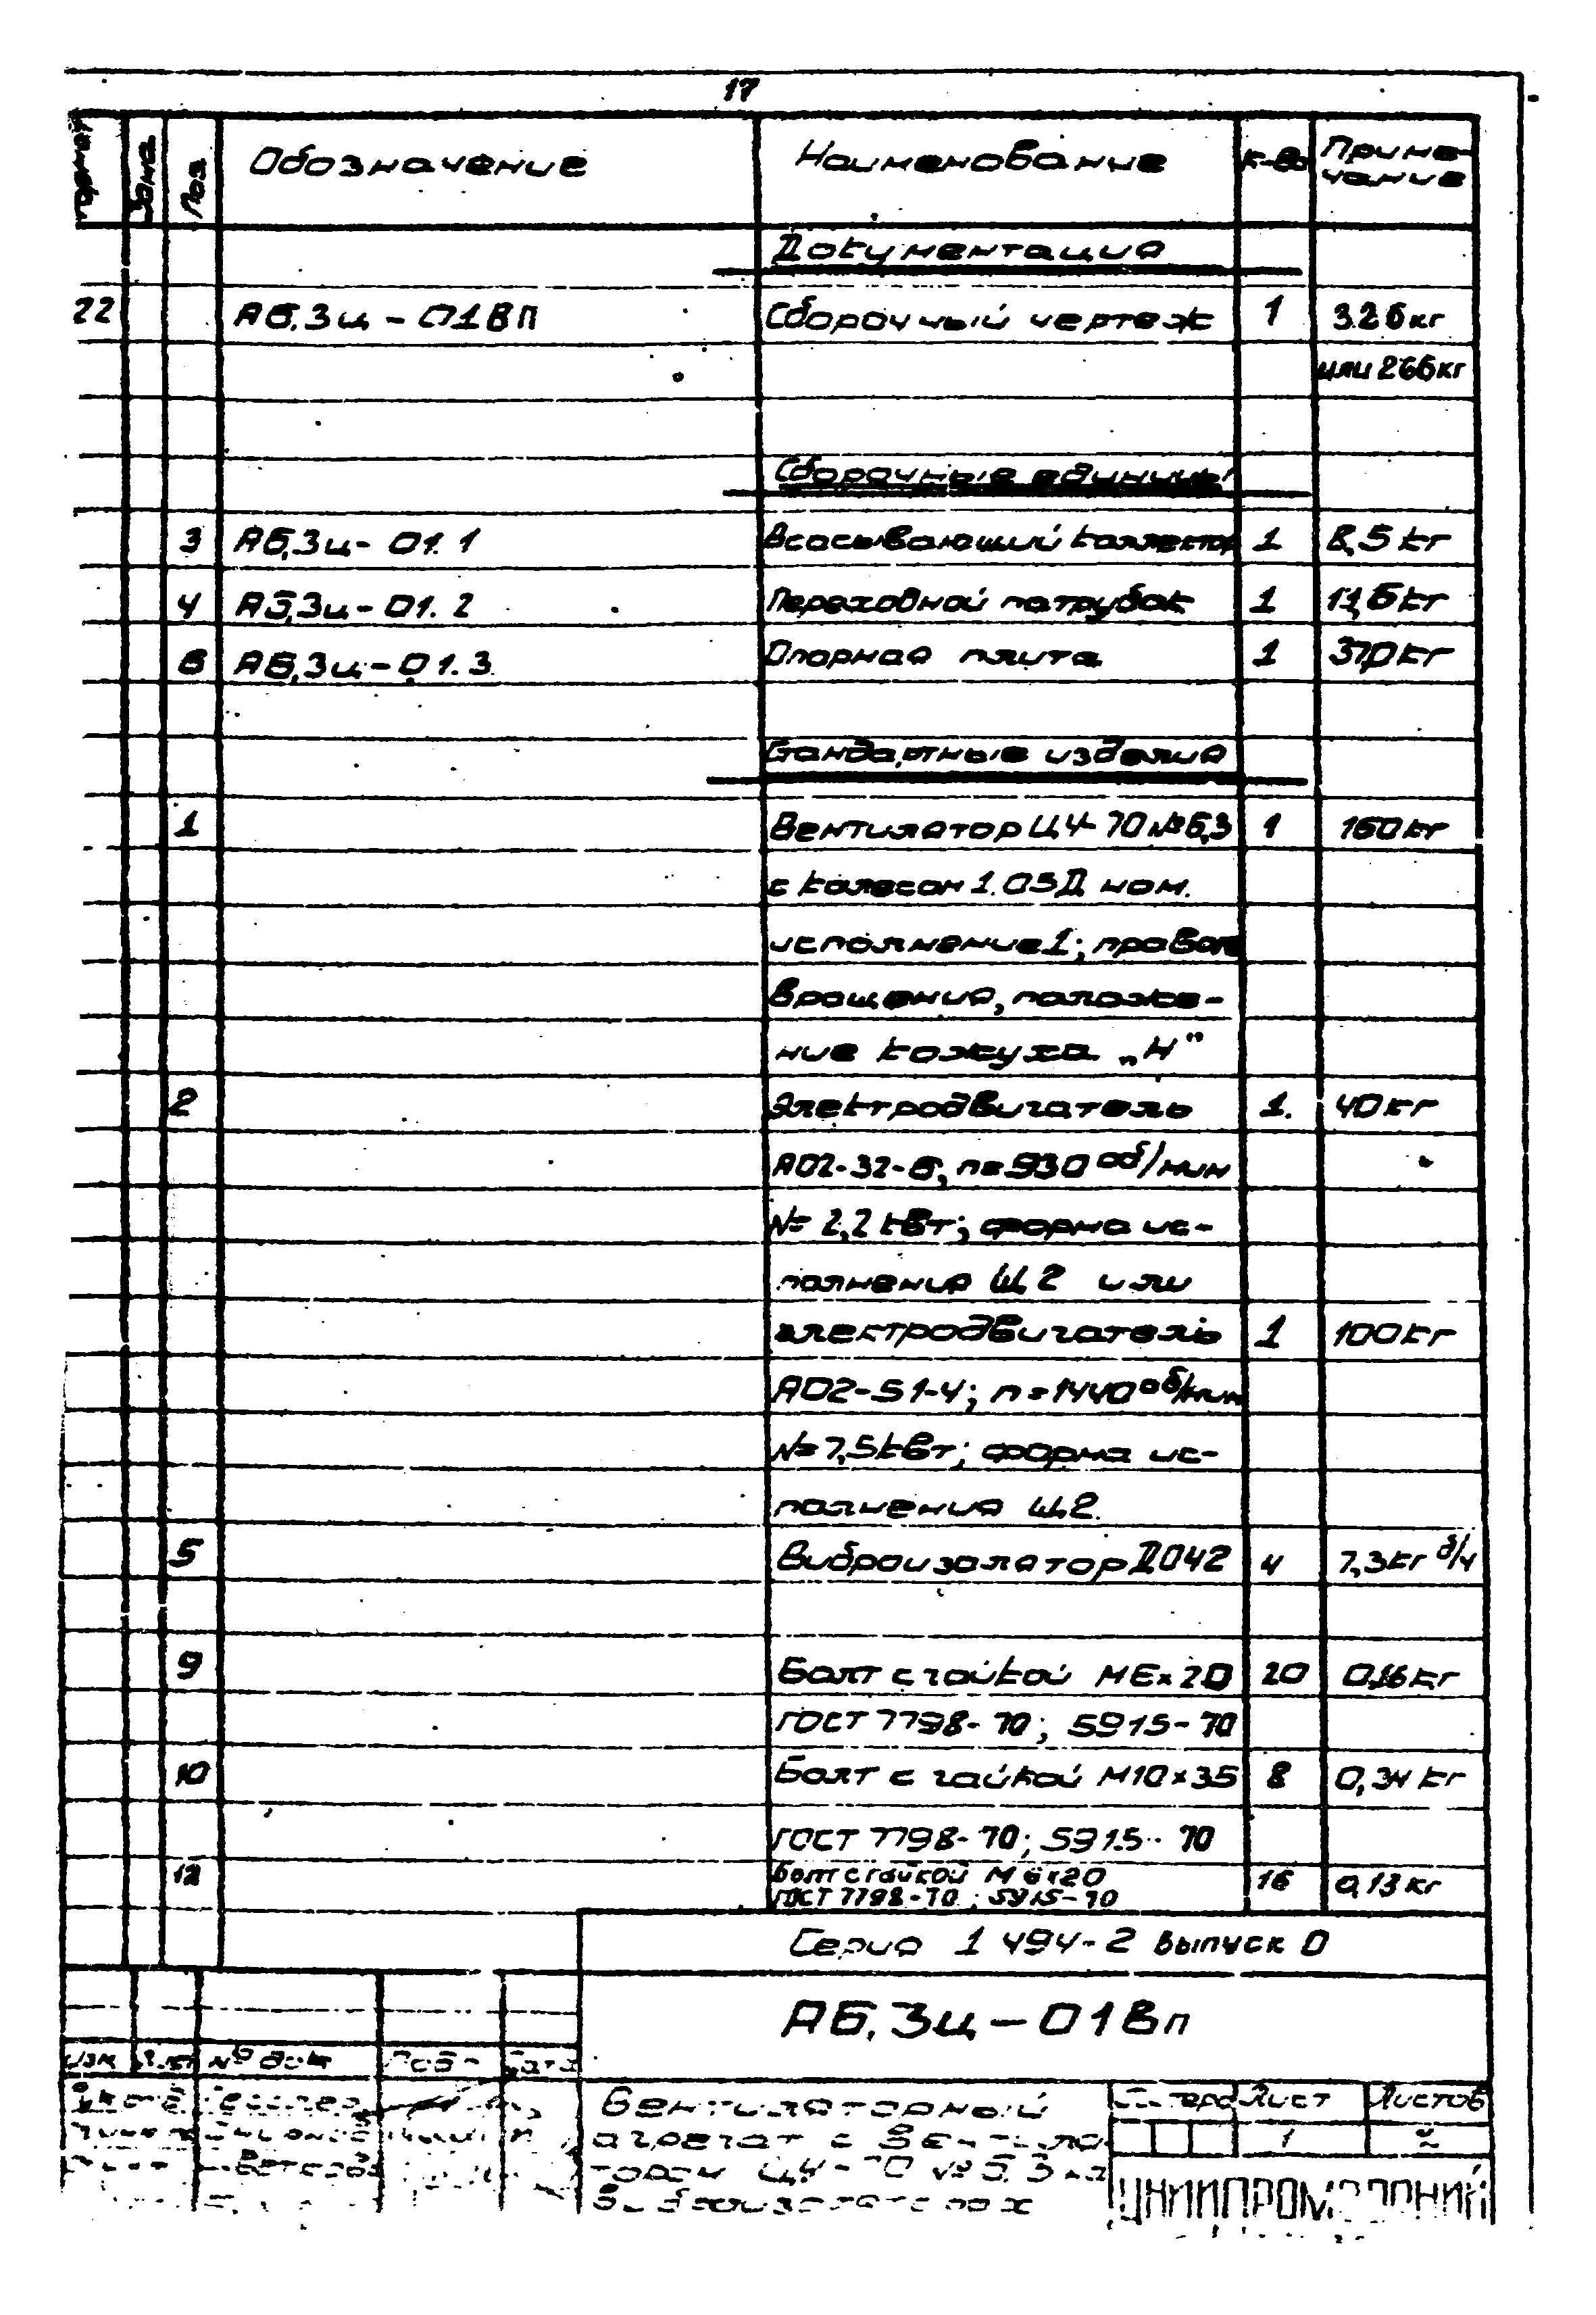 17
Формат Зона Поз Обозначение Наименование к-во Приме-
чание
Документация
22 А6,3ц-01ВП Сборочный чертеж 1 326кг
или 266кг
Сборочные единицы
3 А6,3ц-01.1 Всасывающий коллектор 1 8,5кг
4 А6,3ц-01.2 Переходной патрубок 1 11,6кг
6 А6,3ц-01.3 Опорная плита 1 37,0кг
Стандартные изделия
1 Вентилятор Ц4-70 №6,3 1 160кг
с колесом 1.05Д ном.
исполнение 1; правое
вращения, положе-
ние кожуха „Н"
2 Электродвигатель 1. 40кг
АО2-32-6, n=930 об/мин
N=2,2квт; форма ис-
полнения Щ2 или
электродвигатель 1 100кг
АО2-51-4; n=1440 об/мин
N=7,5квт; форма ис-
полнения Щ2.
5 Виброизолятор ДО42 4 7,3кг б/ч
9 Болт с гайкой М6×20 20 0,16кг
ГОСТ 7798-70; 5915-70
10 Болт с гайкой М10×35 8 0,34кг
ГОСТ 7798-70; 5915-70
12 Болт с гайкой М6×20 16 0,13кг
ГОСТ 7798-70; 5915-70
Серия 1 494-2 выпуск 0
А6,3ц-01Вп
Изм Лист № док Подп Дата
Вентиляторный
агрегат с вентиля-
тором Ц4-70 №6.3 на
виброизоляторах
Лист Листов
1